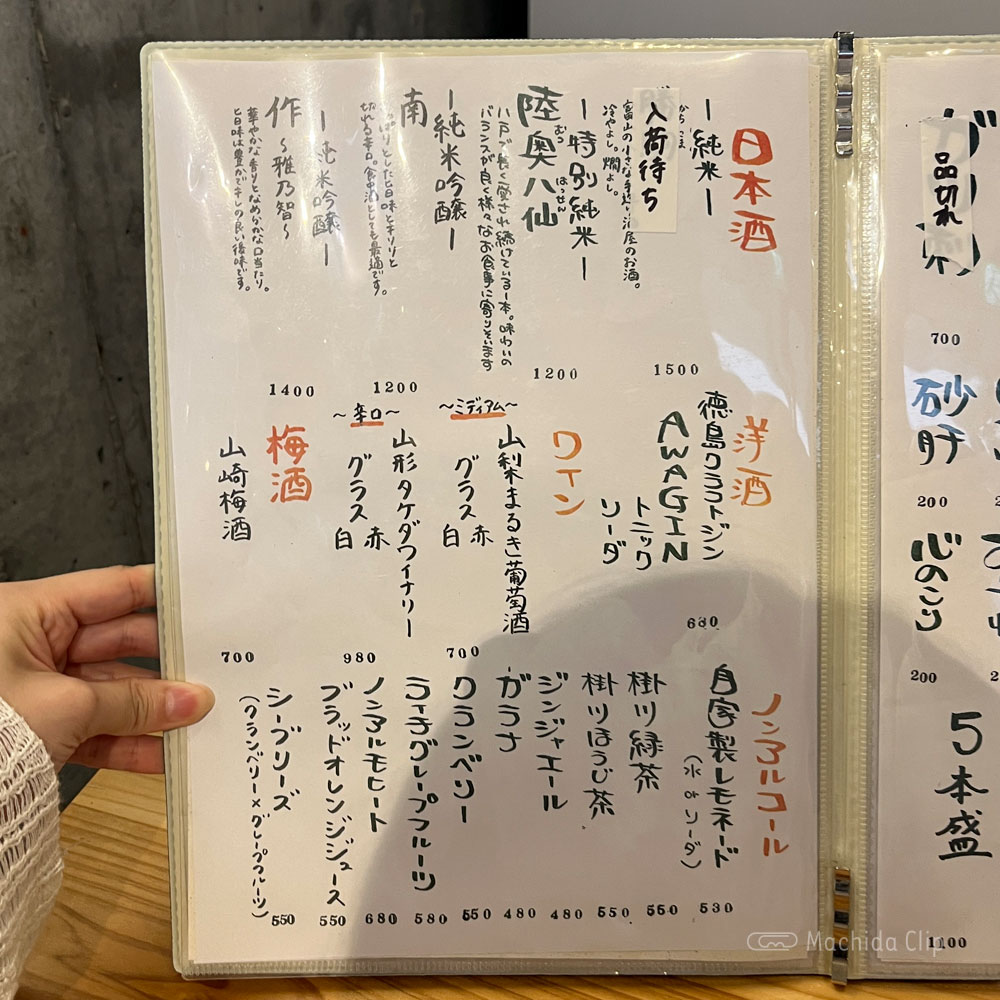 日本酒
ー純米ー
入荷待ち
富山の小さな手造り酒屋のお酒。
冷やよし。燗よし。
1500
ー特別純米ー
陸奥八仙
むつ はっせん
八戸で長く愛され続けている一本。味わいの
バランスが良く様々なお食事に寄りそいます
1200
ー純米吟醸ー
南
りとした旨味とキリリと
切れる辛口。食中酒としても最適です。
1200
ー純米吟醸ー
作 〜雅乃智〜
華やかな香りとなめらかな口当たり。
旨味は豊かでキレの良い後味です。
1400
洋酒
徳島クラフトジン
AWAGIN
トニック
ソーダ
680
ワイン
〜ミディアム〜
山梨まるき葡萄酒
グラス 赤
白
700
〜辛口〜
山形タケダワイナリー
グラス 赤
白
980
梅酒
山崎梅酒
700
ノンアルコール
自家製レモネード
(水 or ソーダ)
530
掛川緑茶
550
掛川ほうじ茶
550
ジンジャエール
480
ガラナ
480
クランベリー
550
ライチグレープフルーツ
580
ノンアルモヒート
680
ブラッドオレンジジュース
550
シーブリーズ
(クランベリー×グレープフルーツ)
550
品切れ
700
砂肝
200
200
心のこり
200
5本盛
1100
Machida Clip